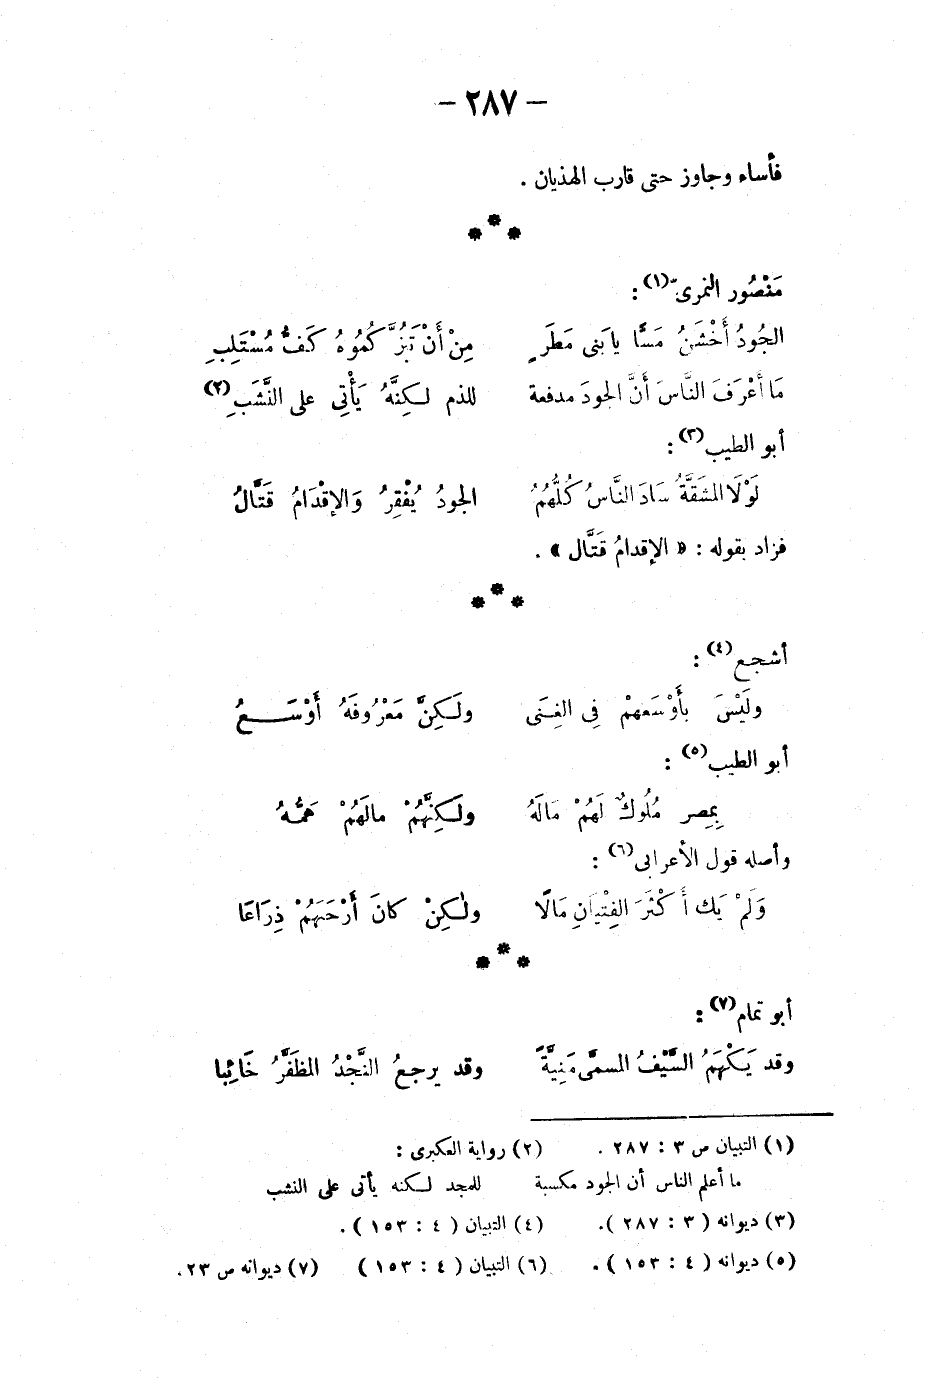 — ٢٨٧ —
فأساء وجاوز حتى قارب الهذيان .
***
مَنْصُور النمرىّ(١) :
الجُودُ أَخْشَنُ مَسًّا يا بَنى مَطَرٍ مِنْ أَنْ تَبُزَّ كُمُوهُ كَفُّ مُسْتَلِبِ
مَا أَعْرَفَ النَّاسَ أَنَّ الجودَ مدفعة للذم لـكِنَّهُ يَأْتِى على النَّشَبِ(٢)
أبو الطيب(٣) :
لَوْلَا المشَقَّةُ سَادَ النَّاسُ كُلُّهُمُ الجودُ يُفْقِرُ وَالإقْدَامُ قَتَّالُ
فزاد بقوله : « الإقدامُ قَتَّال » .
***
أشجع(٤) :
ولَيْسَ بأَوْسَعهمْ فِى الغِـنَى ولَـكِنَّ مَعْرُوفَهُ أَوْسَـــعُ
أبو الطيب(٥) :
بِمِصر مُلُوكٌ لَهُمْ مَالَهُ ولَـكِنَّهُمْ مالَهُمْ هَمُّـهُ
وأصله قول الأعرابى(٦) :
وَلَمْ يَك أَكْثَرَ الفِتْيَانِ مَالًا ولٰـكِنْ كانَ أَرْحَبَهُمْ ذِرَاعًا
***
أبو تمام(٧) :
وقد يَكْهَمُ السَّيْفُ المسمَّى مَنِيَّةً وقد يرجعُ النَّجْدُ المظَفَّرُ خَائِبا
(١) التبيان ص ٣ : ٢٨٧ . (٢) رواية العكبرى :
ما أعلم الناس أن الجود مكسبة للمجد لـكنه يأتى على النشب
(٣) ديوانه ( ٣ : ٢٨٧ ). (٤) التبيان ( ٤ : ١٥٣ ) .
(٥) ديوانه ( ٤ : ١٥٣ ) . (٦) التبيان ( ٤ : ١٥٣ ) (٧) ديوانه ص ٢٣ .